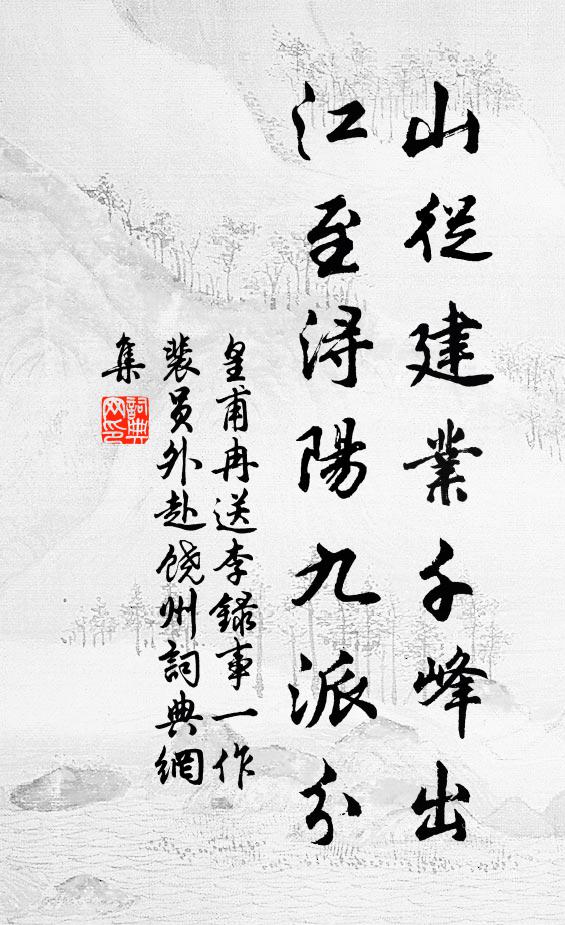 山從建業千峰出
江至潯陽九派分
皇甫冉送李錄事一作
裴員外赴饒州詞典網
集
詞典
网印